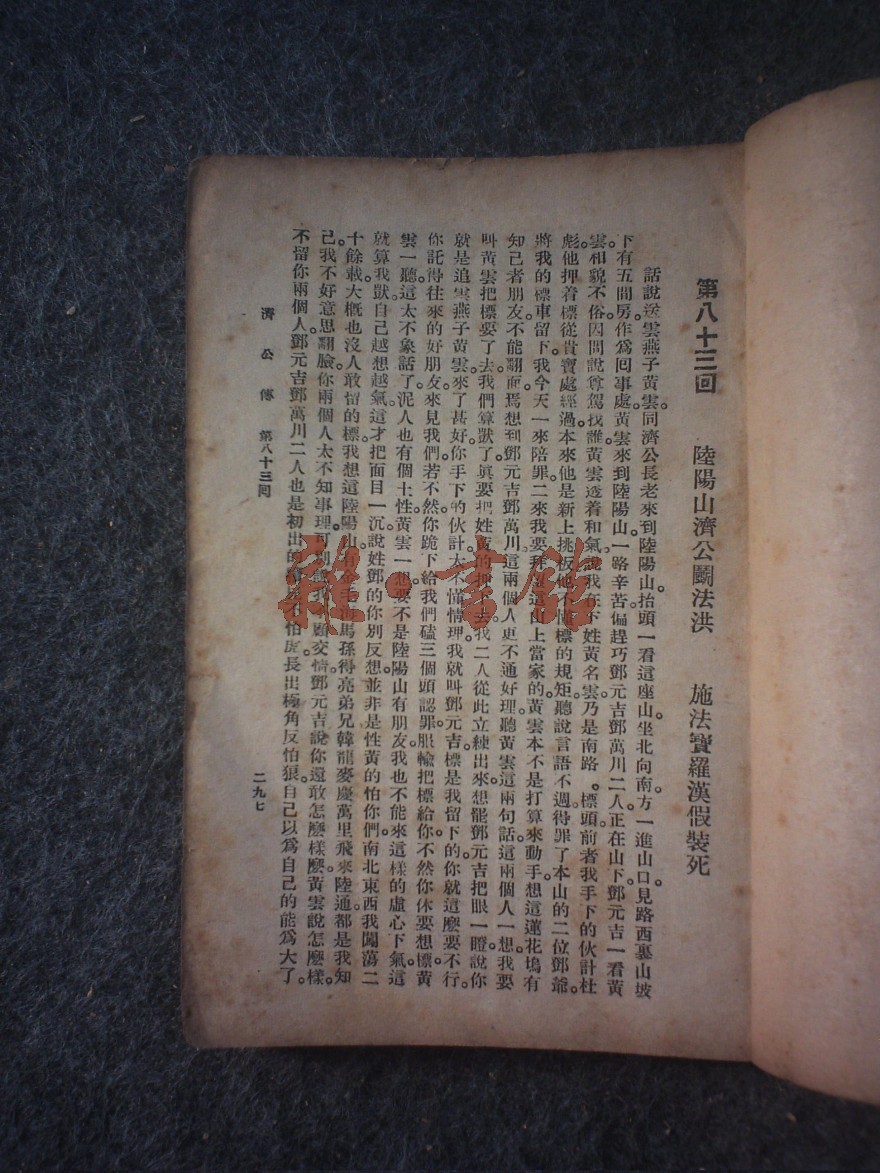 第八十三回　陸陽山濟公鬭法洪　施法寶羅漢假裝死
話說送雲燕子黃雲。同濟公長老來到陸陽山。抬頭一看這座山。坐北向南。方一進山口。見路西裏山坡
下有五間房。作爲回事處。黃雲來到陸陽山。一路辛苦。偏趕巧鄧元吉鄧萬川二人。正在山下。鄧元吉一看黃
雲。相貌不俗。因問說尊駕找誰。黃雲透着和氣。說我在下姓黃名雲。乃是南路。標頭。前者我手下的伙計杜
彪。他押着標。從貴寶處經過。本來他是新上挑板。他不懂標的規矩。聽說言語不週。得罪了本山的二位鄧爺。
將我的標車留下。我今天一來陪罪。二來我要拜望這山上當家的。黃雲本不是打算來動手。想這蓮花塢有
知己者朋友。不能翻面。焉想到鄧元吉鄧萬川。這兩個人更不通好理。聽黃雲這兩句話。這兩個人一想。我要
叫黃雲把標要了去。我們算獃了。真要把姓黃的押一去。我二人從此立練出來。想罷。鄧元吉把眼一瞪。說你
就是追雲燕子黃雲。來了甚好。你手下的伙計太不懂情理。我就叫鄧元吉。標是我留下的。你就這麼要不行。
你託得往來的好朋友來見我們。若不然。你跪下給我們磕三個頭。認罪服輸。把標給你。不然你休要想標。黃
雲一聽。這太不象話了。泥人也有個土性。黃雲一想。要不是陸陽山有朋友。我也不能來這樣的虛心下氣。這
就算我獃。自己越想越氣。這才把面目一沉。說姓鄧的你別反想。並非是性黃的怕你們。南北東西我闖蕩二
十餘載。大槪也沒人敢留的標。我想這陸陽山。有金毛海馬孫得亮弟兄。韓龍麥慶。萬里飛來陸通。都是我知
己。我不好意思翻臉。你兩個人太不知事理。可別說我不顧交情。鄧元吉說你還敢怎麼樣麼。黃雲說怎麼樣。
不留你兩個人。鄧元吉鄧萬川二人也是初出的犢不怕虎。長出極角反怕狼。自己以爲自己的能爲大了。
濟公傳　第八十三回　二九七
雜·書館